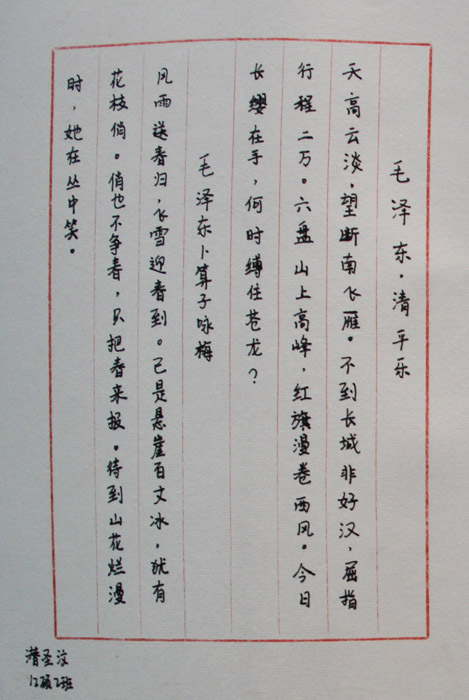 毛泽东·清平乐
天高云淡，望断南飞雁。不到长城非好汉，屈指
行程二万。六盘山上高峰，红旗漫卷西风。今日
长缨在手，何时缚住苍龙？
毛泽东卜算子咏梅
风雨送春归，飞雪迎春到。已是悬崖百丈冰，犹有
花枝俏。俏也不争春，只把春来报。待到山花烂漫
时，她在丛中笑。
圣汶
12硕2班